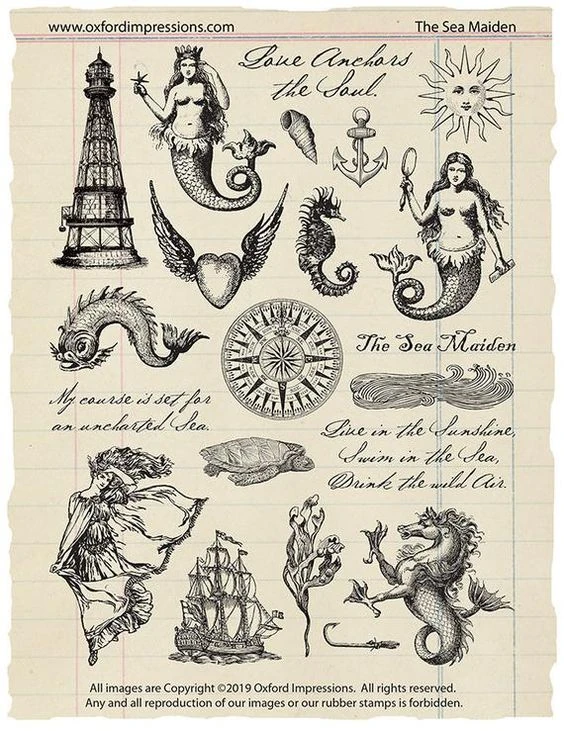 www.oxfordimpressions.com
The Sea Maiden
Love Anchors
the Soul.
The Sea Maiden
My course is set for
an uncharted Sea.
Live in the Sunshine,
Swim in the Sea,
Drink the wild Air.
All images are Copyright ©2019 Oxford Impressions. All rights reserved.
Any and all reproduction of our images or our rubber stamps is forbidden.